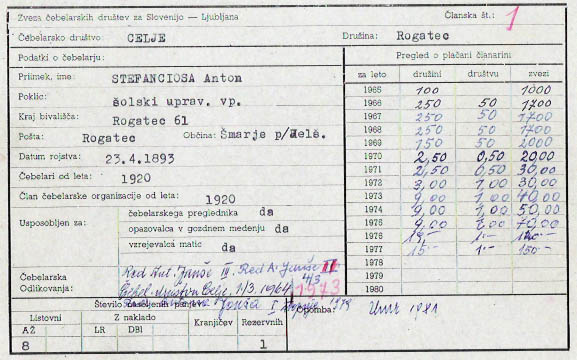 Zveza čebelarskih društev za Slovenijo — Ljubljana
Članska št.: 1
Čebelarsko društvo CELJE
Družina: Rogatec
Podatki o čebelarju:
Priimek, ime: STEFANCIOSA Anton
Poklic: šolski uprav. vp.
Kraj bivališča: Rogatec 61
Pošta: Rogatec Občina: Šmarje p/Jelš.
Datum rojstva: 23.4.1893
Čebelari od leta: 1920
Član čebelarske organizacije od leta: 1920
Usposobljen za:
čebelarskega preglednika da
opazovalca v gozdnem medenju da
vzrejevalca matic da
Čebelarska Odlikovanja:
Red A. Janše II
1973
Janša I
Število naseljenih panjev
Listovni Z naklado Kranjičev Rezervnih
AŽ LR DBI
8 1
Pregled o plačani članarini
za leto družini društvu zvezi
1965 100 1000
1966 250 50 1700
1967 250 50 1700
1968 250 50 1700
1969 150 50 2000
1970 2,50 0,50 20,00
1971 2,50 0,50 30,00
1972 3,00 1,00 30,00
1973 9,00 1,00 40,00
1974 9,00 1,00 50,00
1975 9,00 1,00 70,00
1976 1.-
1977 15.- 1.- 150.-
1978
1979
1980
Opomba: Umrl 1981